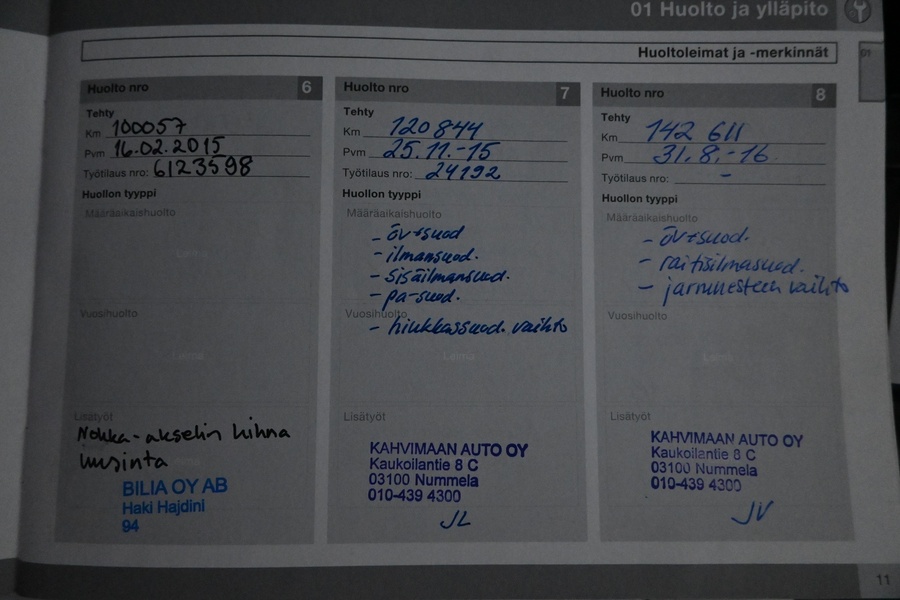 01 Huolto ja ylläpito
Huoltoleimat ja -merkinnät
01
Huolto nro 6
Tehty
Km 100057
Pvm 16.02.2015
Työtilaus nro: 6123598
Huollon tyyppi
Määräaikaishuolto
Leima
Vuosihuolto
Leima
Lisätyöt
Nokka-akselin hihna
uusinta
BILIA OY AB
Haki Hajdini
94
Huolto nro 7
Tehty
Km 120844
Pvm 25.11.-15
Työtilaus nro: 24192
Huollon tyyppi
Määräaikaishuolto
- öv+suod
- ilmansuod.
- sisäilmansuod.
- pa-suod.
Vuosihuolto
- hiukkassuod. vaihto
Leima
Lisätyöt
KAHVIMAAN AUTO OY
Kaukoilantie 8 C
03100 Nummela
010-439 4300
JL
Huolto nro 8
Tehty
Km 142 611
Pvm 31.8.-16
Työtilaus nro: -
Huollon tyyppi
Määräaikaishuolto
- öv+suod.
- raitisilmasuod.
- jarrunesteen vaihto
Vuosihuolto
Leima
Lisätyöt
KAHVIMAAN AUTO OY
Kaukoilantie 8 C
03100 Nummela
010-439 4300
JV
11